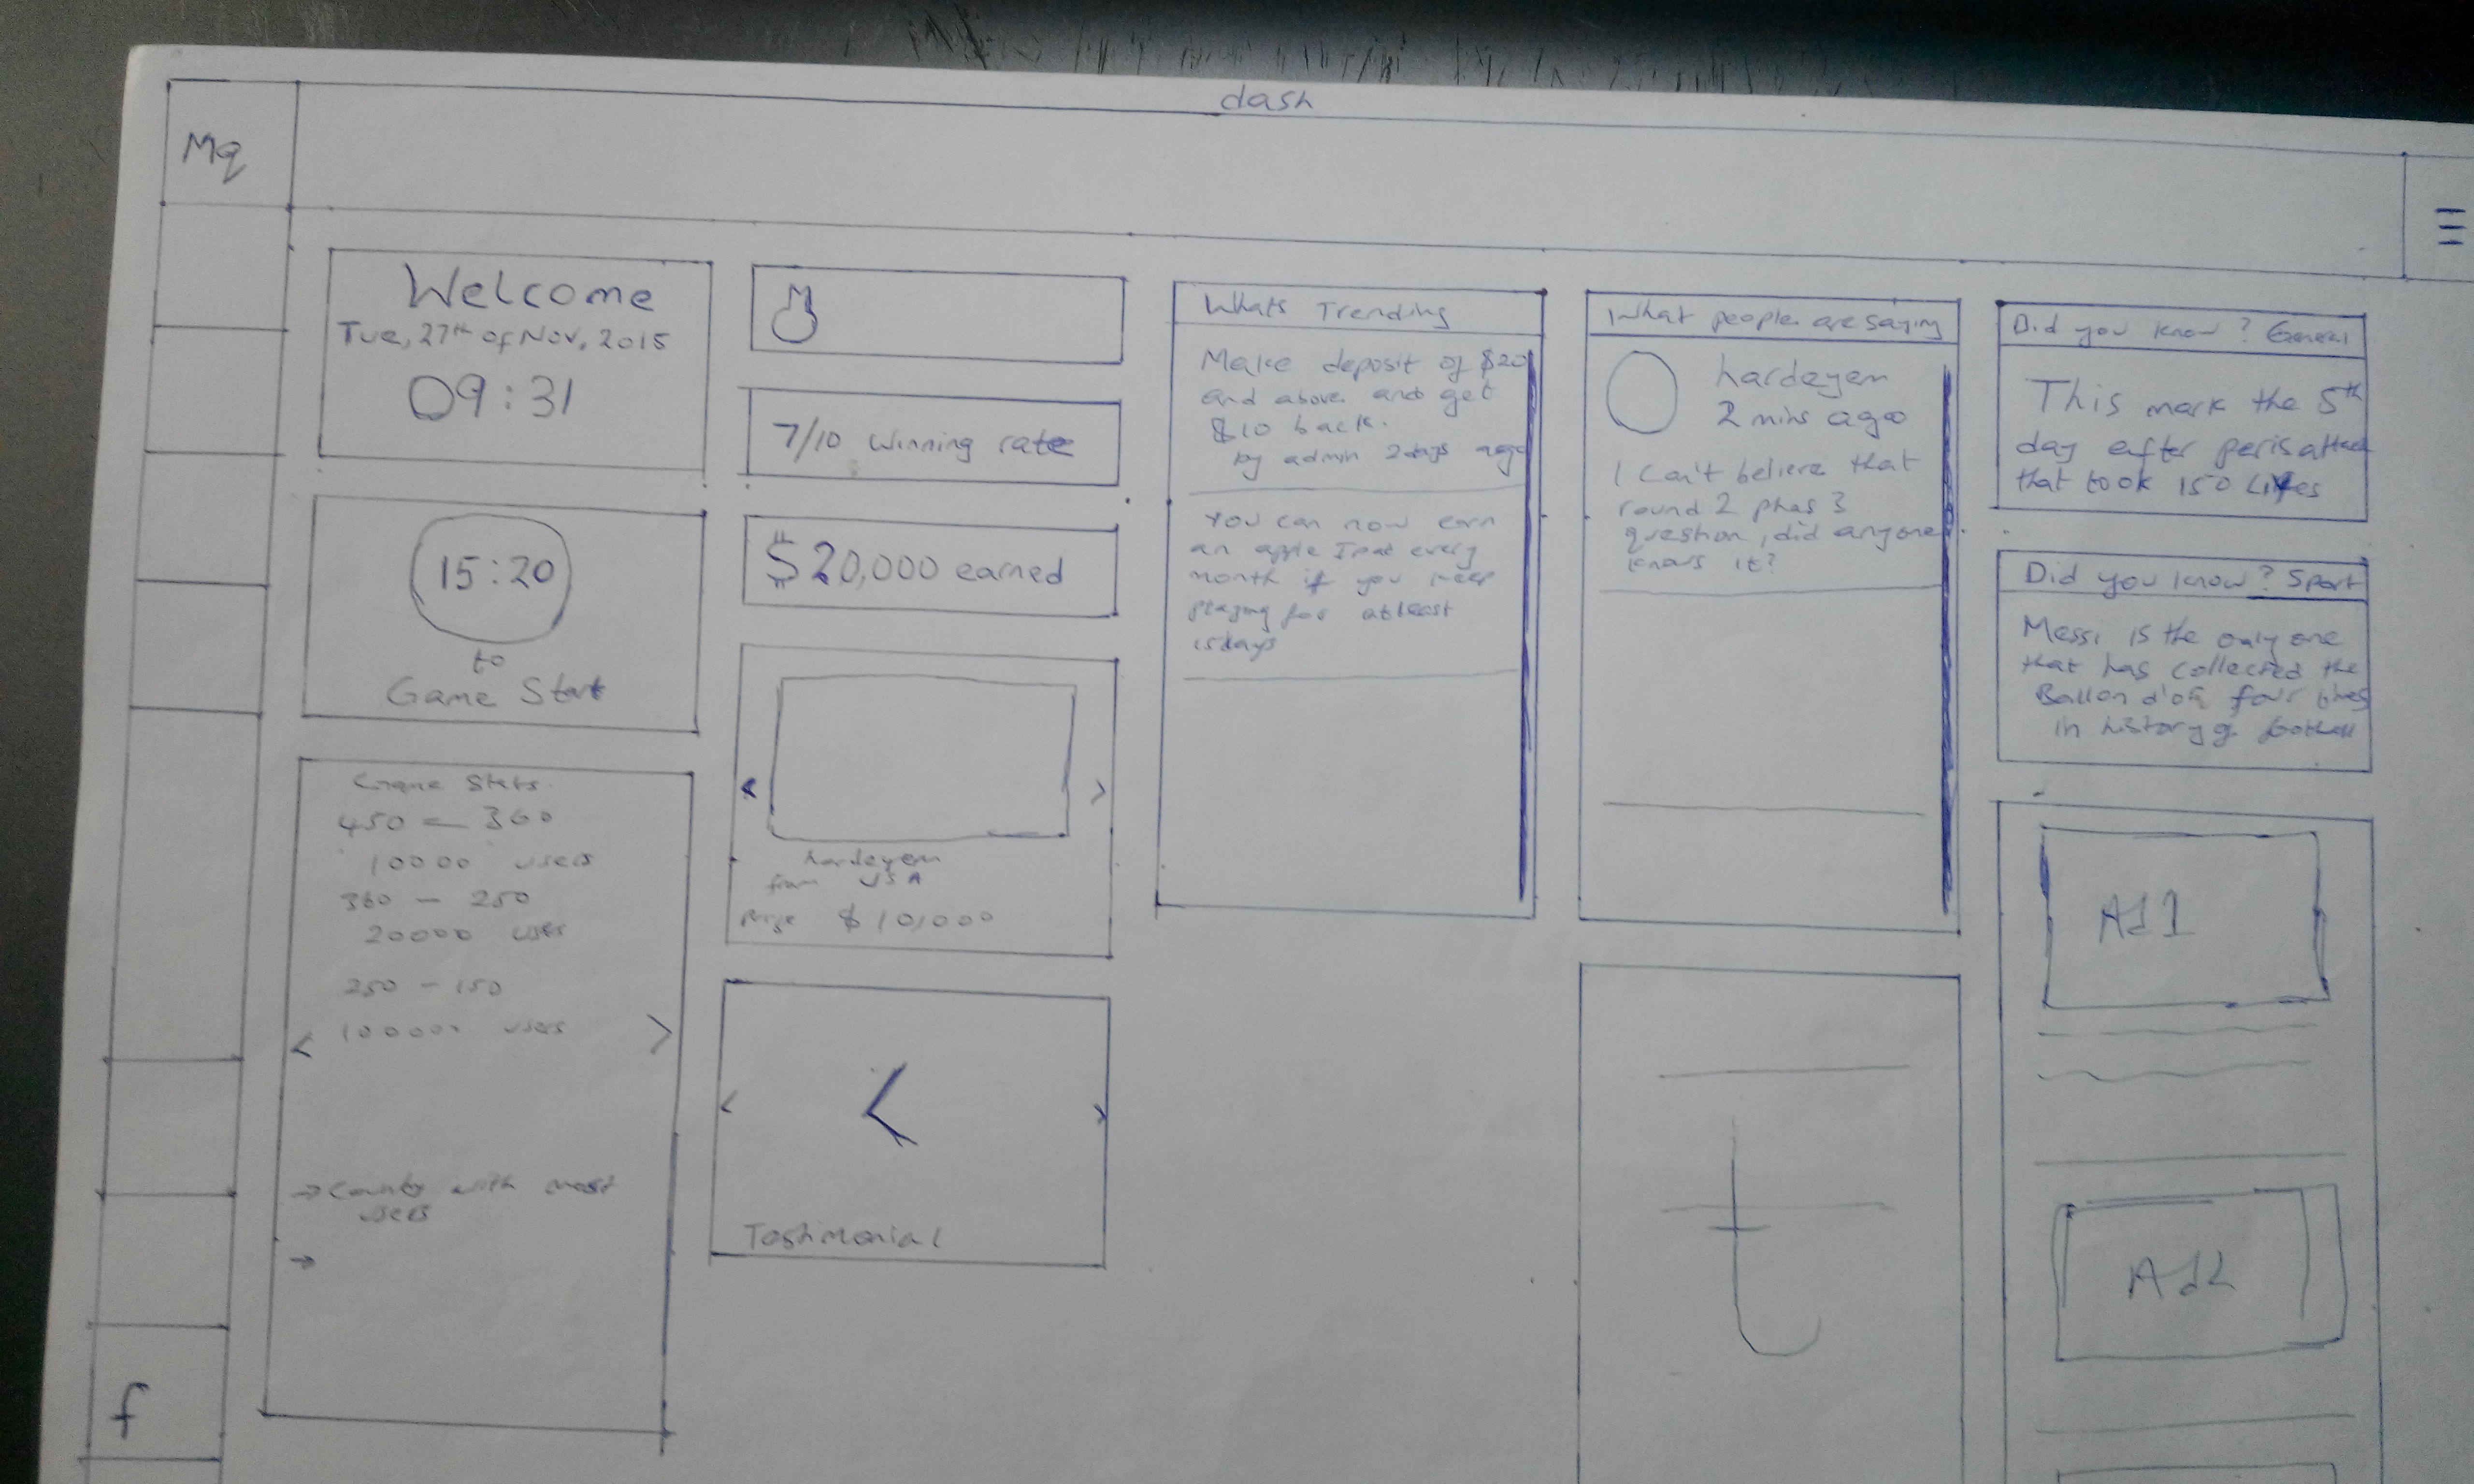 dash
Mq
Welcome
Tue, 27th of Nov, 2015
09:31
15:20
to
Game Start
Game Stats
450 - 360
10000 users
360 - 250
20000 users
250 - 150
100000 users
<
>
→ Country with most
users
→
f
7/10 winning rate
$20,000 earned
<
>
hardeyem
from USA
prize $10,000
<
<
>
Testimonial
Whats Trending
Make deposit of $20
and above and get
$10 back.
by admin 2days ago
You can now earn
an apple Ipad every
month if you keep
playing for atleast
15days
What people are saying
hardeyem
2 mins ago
I Can't believe that
round 2 phas 3
question, did anyone
knows it?
t
Did you know? General
This mark the 5th
day after paris attack
that took 150 Lives
Did you know? Sport
Messi is the only one
that has collected the
Ballon d'or four times
in history of football
Ad 1
Ad2